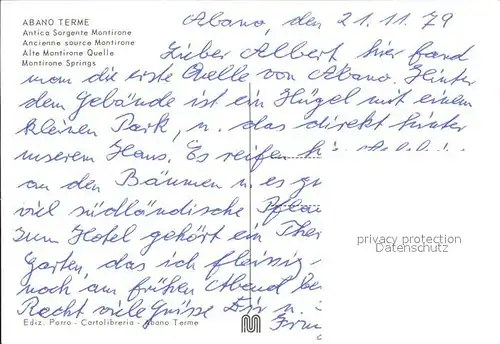 ABANO TERME
Antica Sorgente Montirone
Ancienne source Montirone
Alte Montirone Quelle
Montirone Springs
Abano, den 21.11.79
Lieber Albert, hier fand
man die erste Quelle von Abano. Hinter
dem Gebäude ist ein Hügel mit einem
kleinen Park, u. das direkt hinter
unserem Haus. Es reifen
an den Bäumen u. es
viel südländische
zum Hotel gehört ein
Garten, das ich fleissig
noch am frühen Abend
Recht viele Grüsse Dir u.
privacy protection
Datenschutz
Ediz. Porro - Cartolibreria - Abano Terme